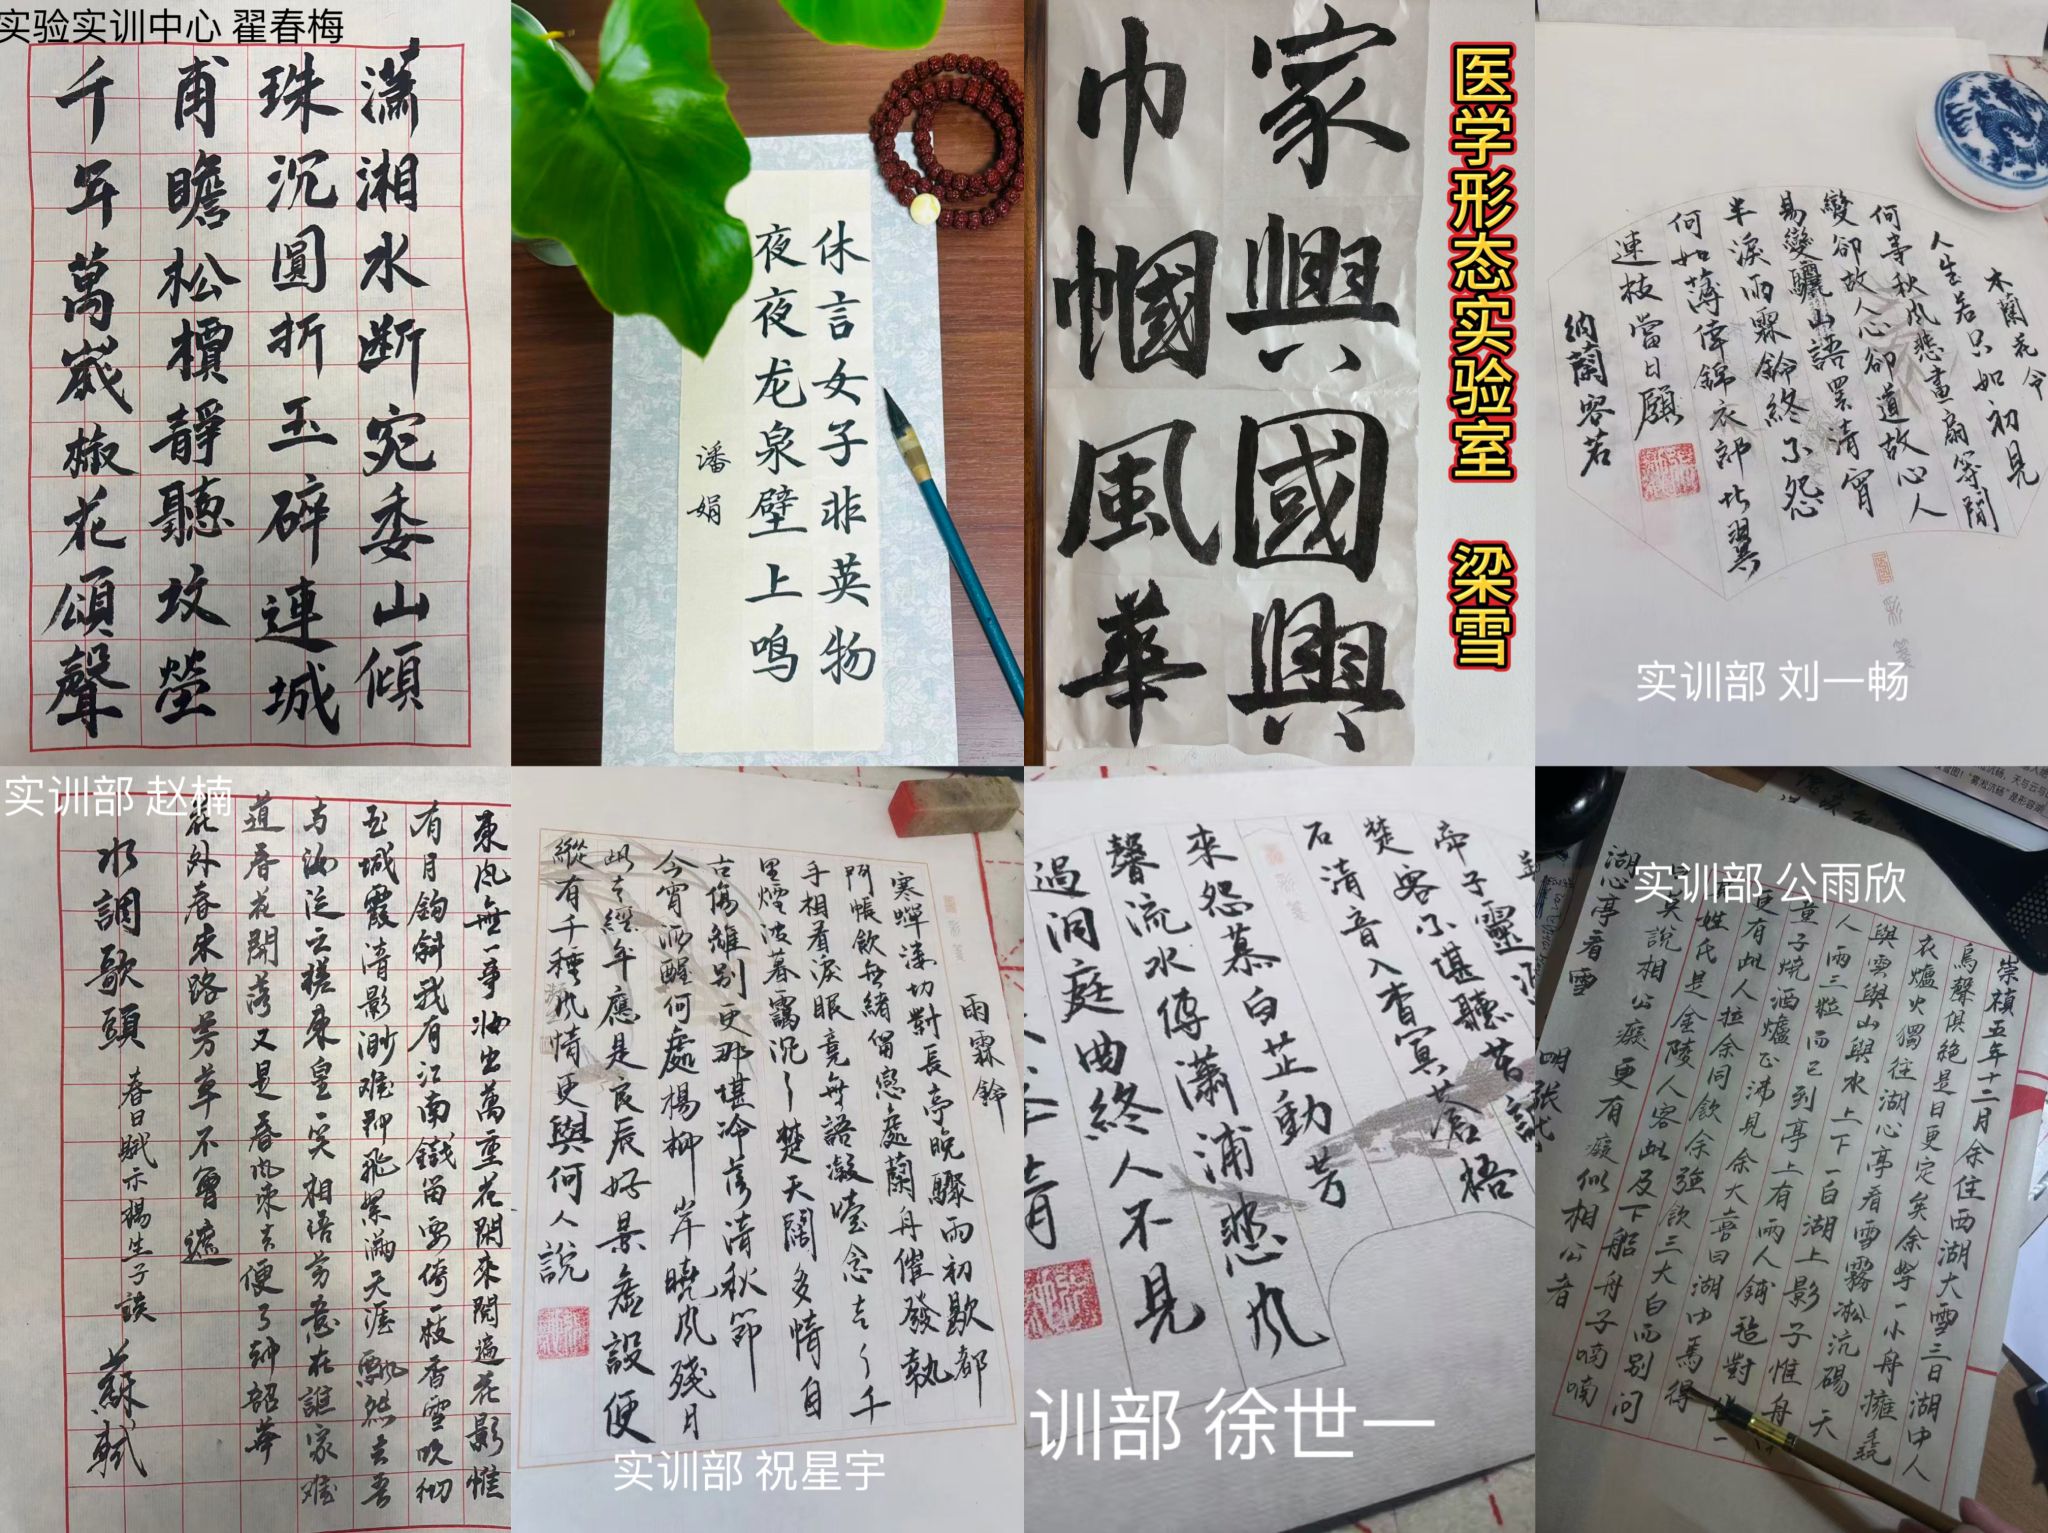 实验实训中心 翟春梅
瀟湘水断宛委山傾
珠沉圓折玉碎連城
甫瞻松檟静聽坟塋
千年萬歲椒花頌聲
休言女子非英物
夜夜龙泉壁上鸣
潘娟
家興國興
巾幗風華
医学形态实验室 梁雪
木蘭花令
人生若只如初見
何事秋风悲畫扇等閒
變卻故人心卻道故心人
易變驪山語罢清宵
半淚雨霖鈴終不怨
何如薄倖錦衣郎比翼
連枝當日願
納蘭容若
实训部 刘一畅
实训部 赵楠
東风無一事妝出萬重花閑來閱遍花影惟
有月鈎斜我有江南鐵笛要倚一枝香雪吹彻
玉城霞清影渺難即飛絮滿天涯飄然去吾
与汝泛云槎東皇一笑相語芳意在誰家難
道春花開落又是春风來去便了却韶華
花外春來路芳草不曾遮
水調歌頭 春日賦示楊生子掞 蘇軾
雨霖鈴
寒蟬凄切對長亭晚驟雨初歇都
門帳飲無緒留戀處蘭舟催發執
手相看淚眼竟無語凝噎念去々千
里煙波暮靄沉々楚天闊多情自
古傷離別更那堪冷落清秋節
今宵酒醒何處楊柳岸曉风殘月
此去經年應是良辰好景虛設便
縱有千種风情更與何人說
实训部 祝星宇
帝子靈
楚客不堪聽苦調
石清音入杳冥蒼梧
來怨慕白芷動芳
馨流水傳瀟浦悲风
過洞庭曲終人不見
青
训部 徐世一
实训部 公雨欣
崇禎五年十二月余住西湖大雪三日湖中人
鳥聲俱絕是日更定矣余拏一小舟擁毳
衣爐火獨往湖心亭看雪霧凇沆碭天
與雲與山與水上下一白湖上影子惟
人兩三粒而已到亭上有兩人鋪氈對坐一
童子燒酒爐正沸見余大喜曰湖中焉得
更有此人拉余同飲余強飲三大白而別問
姓氏是金陵人客此及下船舟子喃喃
曰莫說相公癡更有癡似相公者
湖心亭看雪 明張岱